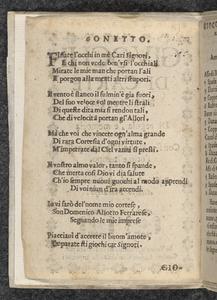 SONETTO.
Fissate l'occhi in me Cari Signori,
E chi non vede ben usi l'occhiali
Mirate le mie man che portan l'ali
E porgon alla menti altri stupori.
Il vento è stanco il fulmin'è gia fuori,
Del suo veloce vol mentre li strali
Di queste dita mia si rendon tali,
Che di velocità portan gl'Allori.
Ma che voi che vincete ogn'alma grande
Di rara Cortesia d'ogni virtute,
M'imperate dal Ciel vanni si presti.
Il vostro almo valor, tanto si spande,
Che merta così Dio vi dia salute
Ch'io sempre nuovi giuochi al modo apprendi
Di voi niun d'ira accendi.
Io vi sarò del nome mio cortese,
Son Domenico Aliotto Ferrarese,
Seguendo le mie imprese
Piacciavi d'accettare il buon'amore,
Preparate si giochi car Signori.
GIO-